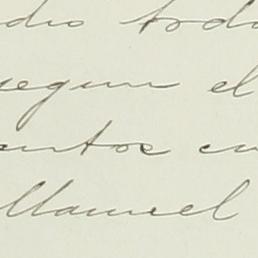 dio todo
segun el
entos en
Manuel